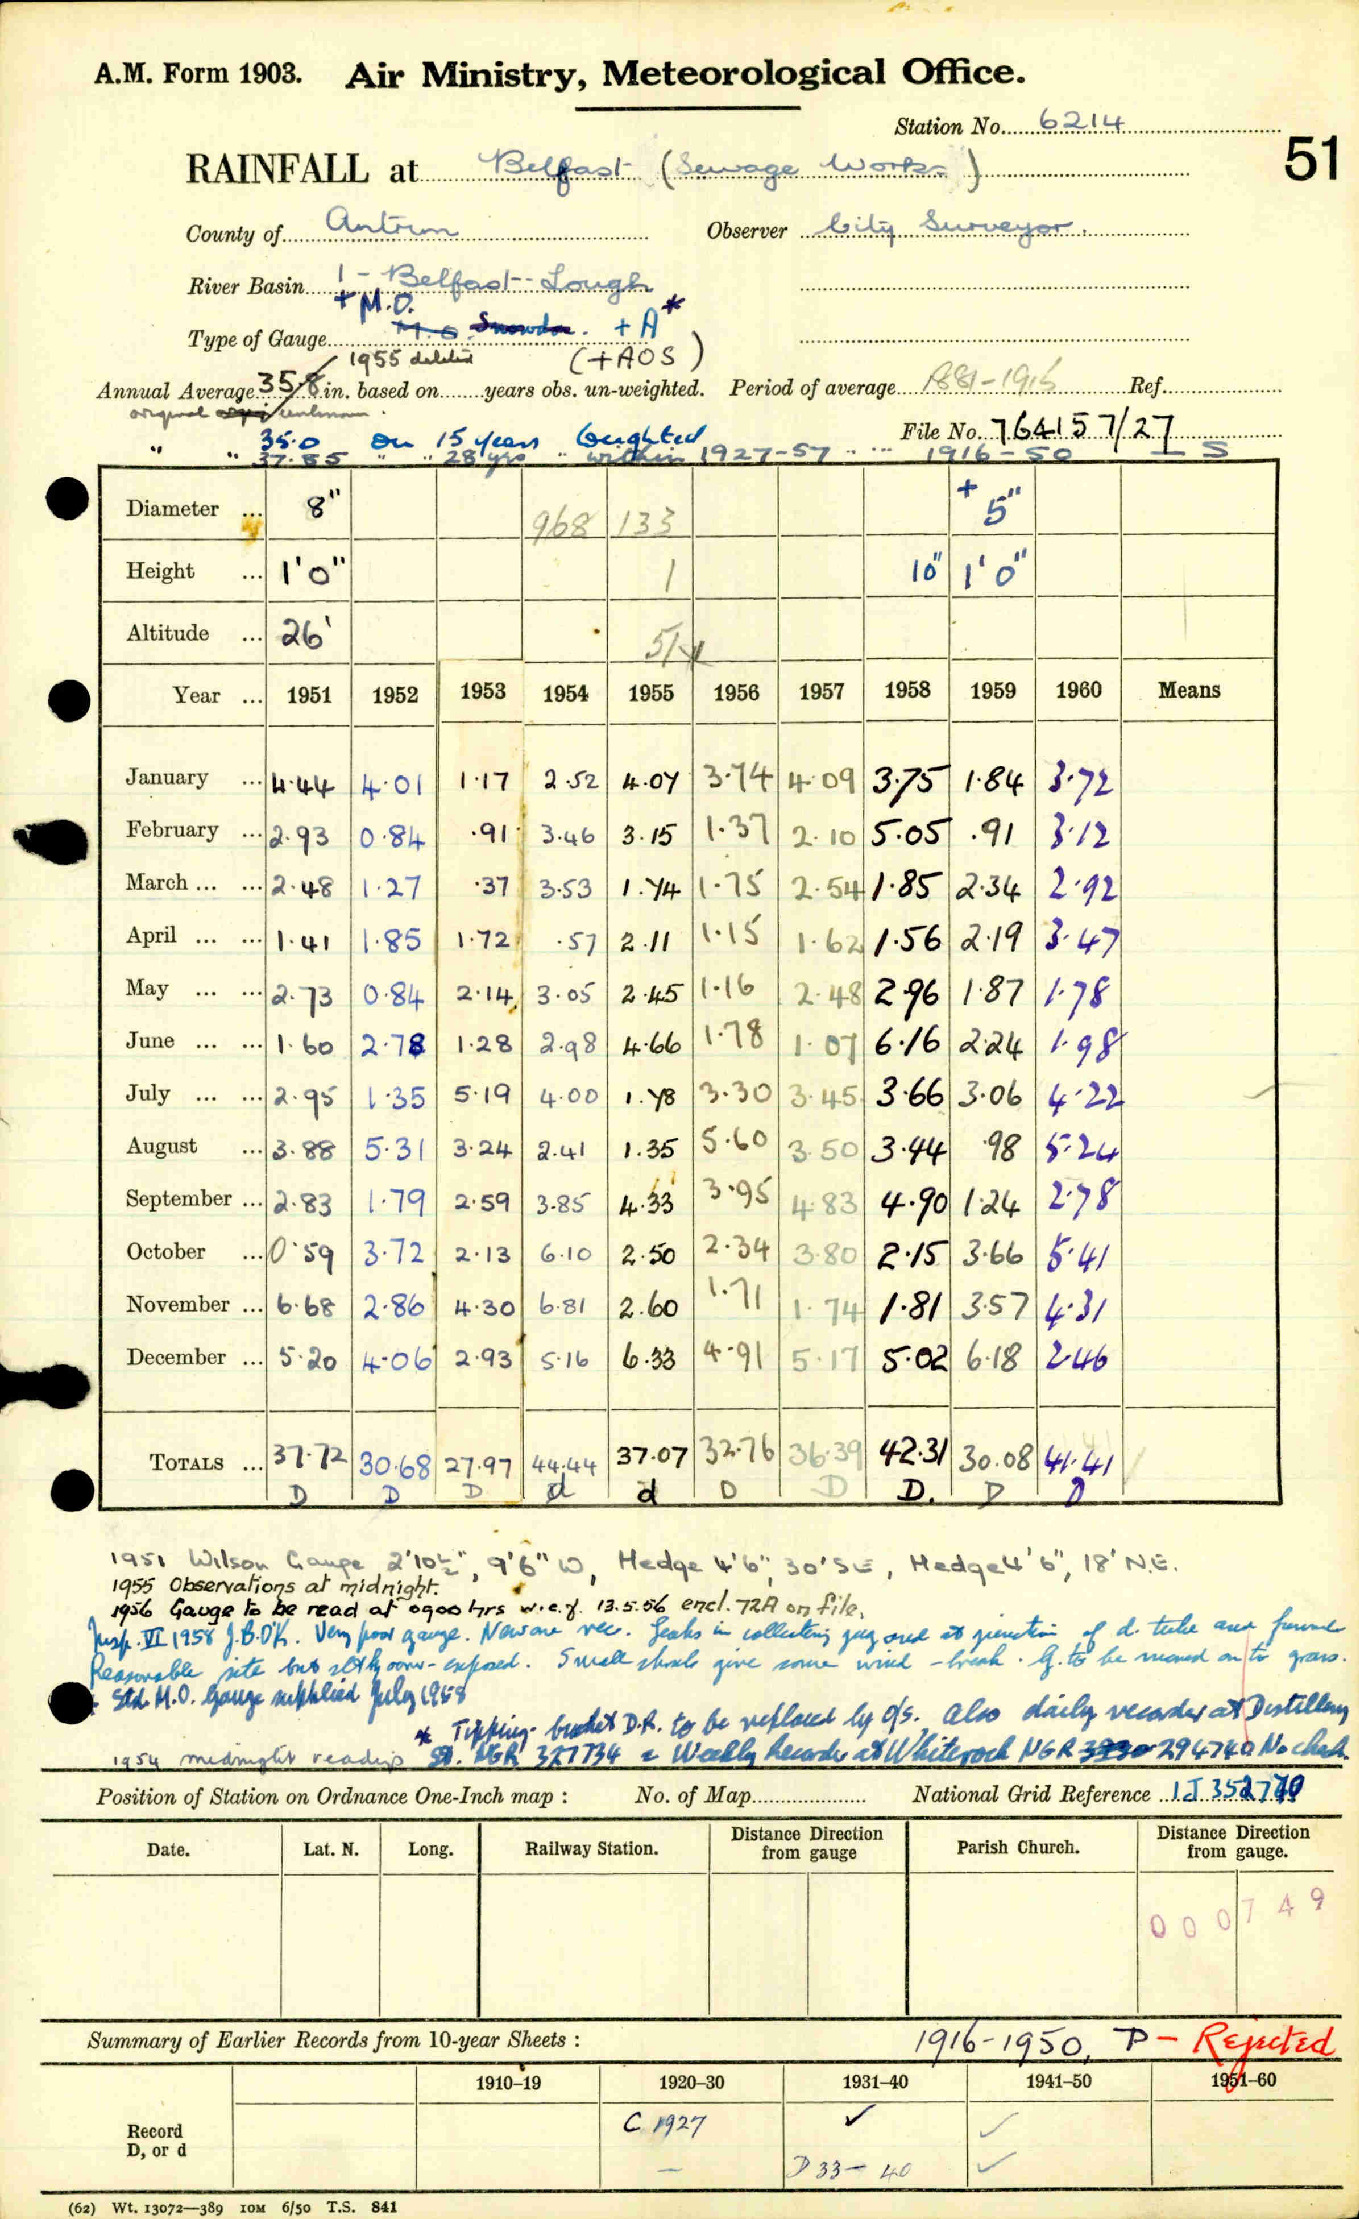 A.M. Form 1903. Air Ministry, Meteorological Office.
Station No. 6214
51
RAINFALL at Belfast (Sewage Works)
County of Antrim Observer City Surveyor.
River Basin 1 - Belfast Lough
+ M.O.
Type of Gauge M.O. Snowdon. + A*
1955 deleted (+AOS)
Annual Average 35.8 in. based on years obs. un-weighted. Period of average 1881-1915 Ref.
original unknown.
File No. 764157/27
" 35.0 on 15 years Weighted
" 37.85 " " 28 yrs " within 1927-57 " " 1916-50 I S
Diameter ... 8" 968 133 + 5"
Height ... 1'0" 1 10" 1'0"
Altitude ... 26' 51
Year ... 1951 1952 1953 1954 1955 1956 1957 1958 1959 1960 Means
January ... 4.44 4.01 1.17 2.52 4.07 3.74 4.09 3.75 1.84 3.72
February ... 2.93 0.84 .91 3.46 3.15 1.37 2.10 5.05 .91 3.12
March ... ... 2.48 1.27 .37 3.53 1.74 1.75 2.54 1.85 2.34 2.92
April ... ... 1.41 1.85 1.72 .57 2.11 1.15 1.62 1.56 2.19 3.47
May ... ... 2.73 0.84 2.14 3.05 2.45 1.16 2.48 2.96 1.87 1.78
June ... ... 1.60 2.78 1.28 2.98 4.66 1.78 1.07 6.16 2.24 1.98
July ... ... 2.95 1.35 5.19 4.00 1.48 3.30 3.45 3.66 3.06 4.22
August ... 3.88 5.31 3.24 2.41 1.35 5.60 3.50 3.44 .98 5.24
September ... 2.83 1.79 2.59 3.85 4.33 3.95 4.83 4.90 1.24 2.78
October ... 0.59 3.72 2.13 6.10 2.50 2.34 3.80 2.15 3.66 5.41
November ... 6.68 2.86 4.30 6.81 2.60 1.71 1.74 1.81 3.57 4.31
December ... 5.20 4.06 2.93 5.16 6.33 4.91 5.17 5.02 6.18 2.46
TOTALS ... 37.72 30.68 27.97 44.44 37.07 32.76 36.39 42.31 30.08 41.41
D D D d d D D D. D D
1951 Wilson Gauge 2'10½", 9'6" W, Hedge 4'6", 30' SE, Hedge 4'6", 18' N.E.
1955 Observations at midnight.
1956 Gauge to be read at 0900 hrs w.e.f. 13.5.56 encl. 72A on file.
Insp. VI 1958 J.B.O'K. Very poor gauge. New one rec. Leaks in collecting jug and at junction of d. tube and funnel
Reasonable site but slty over-exposed. Small shrubs give some wind-break. G. to be moved on to grass.
+ Std M.O. Gauge supplied July 1958
* Tipping-bucket D.R. to be replaced by o/s. Also daily recorder at Distillery
1954 midnight readings St. NGR 327734 & Weekly Recorder at Whiterock NGR 294740 No check.
Position of Station on Ordnance One-Inch map : No. of Map National Grid Reference IJ 352770
Date. Lat. N. Long. Railway Station. Distance Direction from gauge Parish Church. Distance Direction from gauge.
000749
Summary of Earlier Records from 10-year Sheets : 1916-1950, D - Rejected
1910–19 1920–30 1931–40 1941–50 1951–60
Record C 1927 ✓ ✓
D, or d — D 33-40 ✓
(62) Wt. 13072—389 10M 6/50 T.S. 841